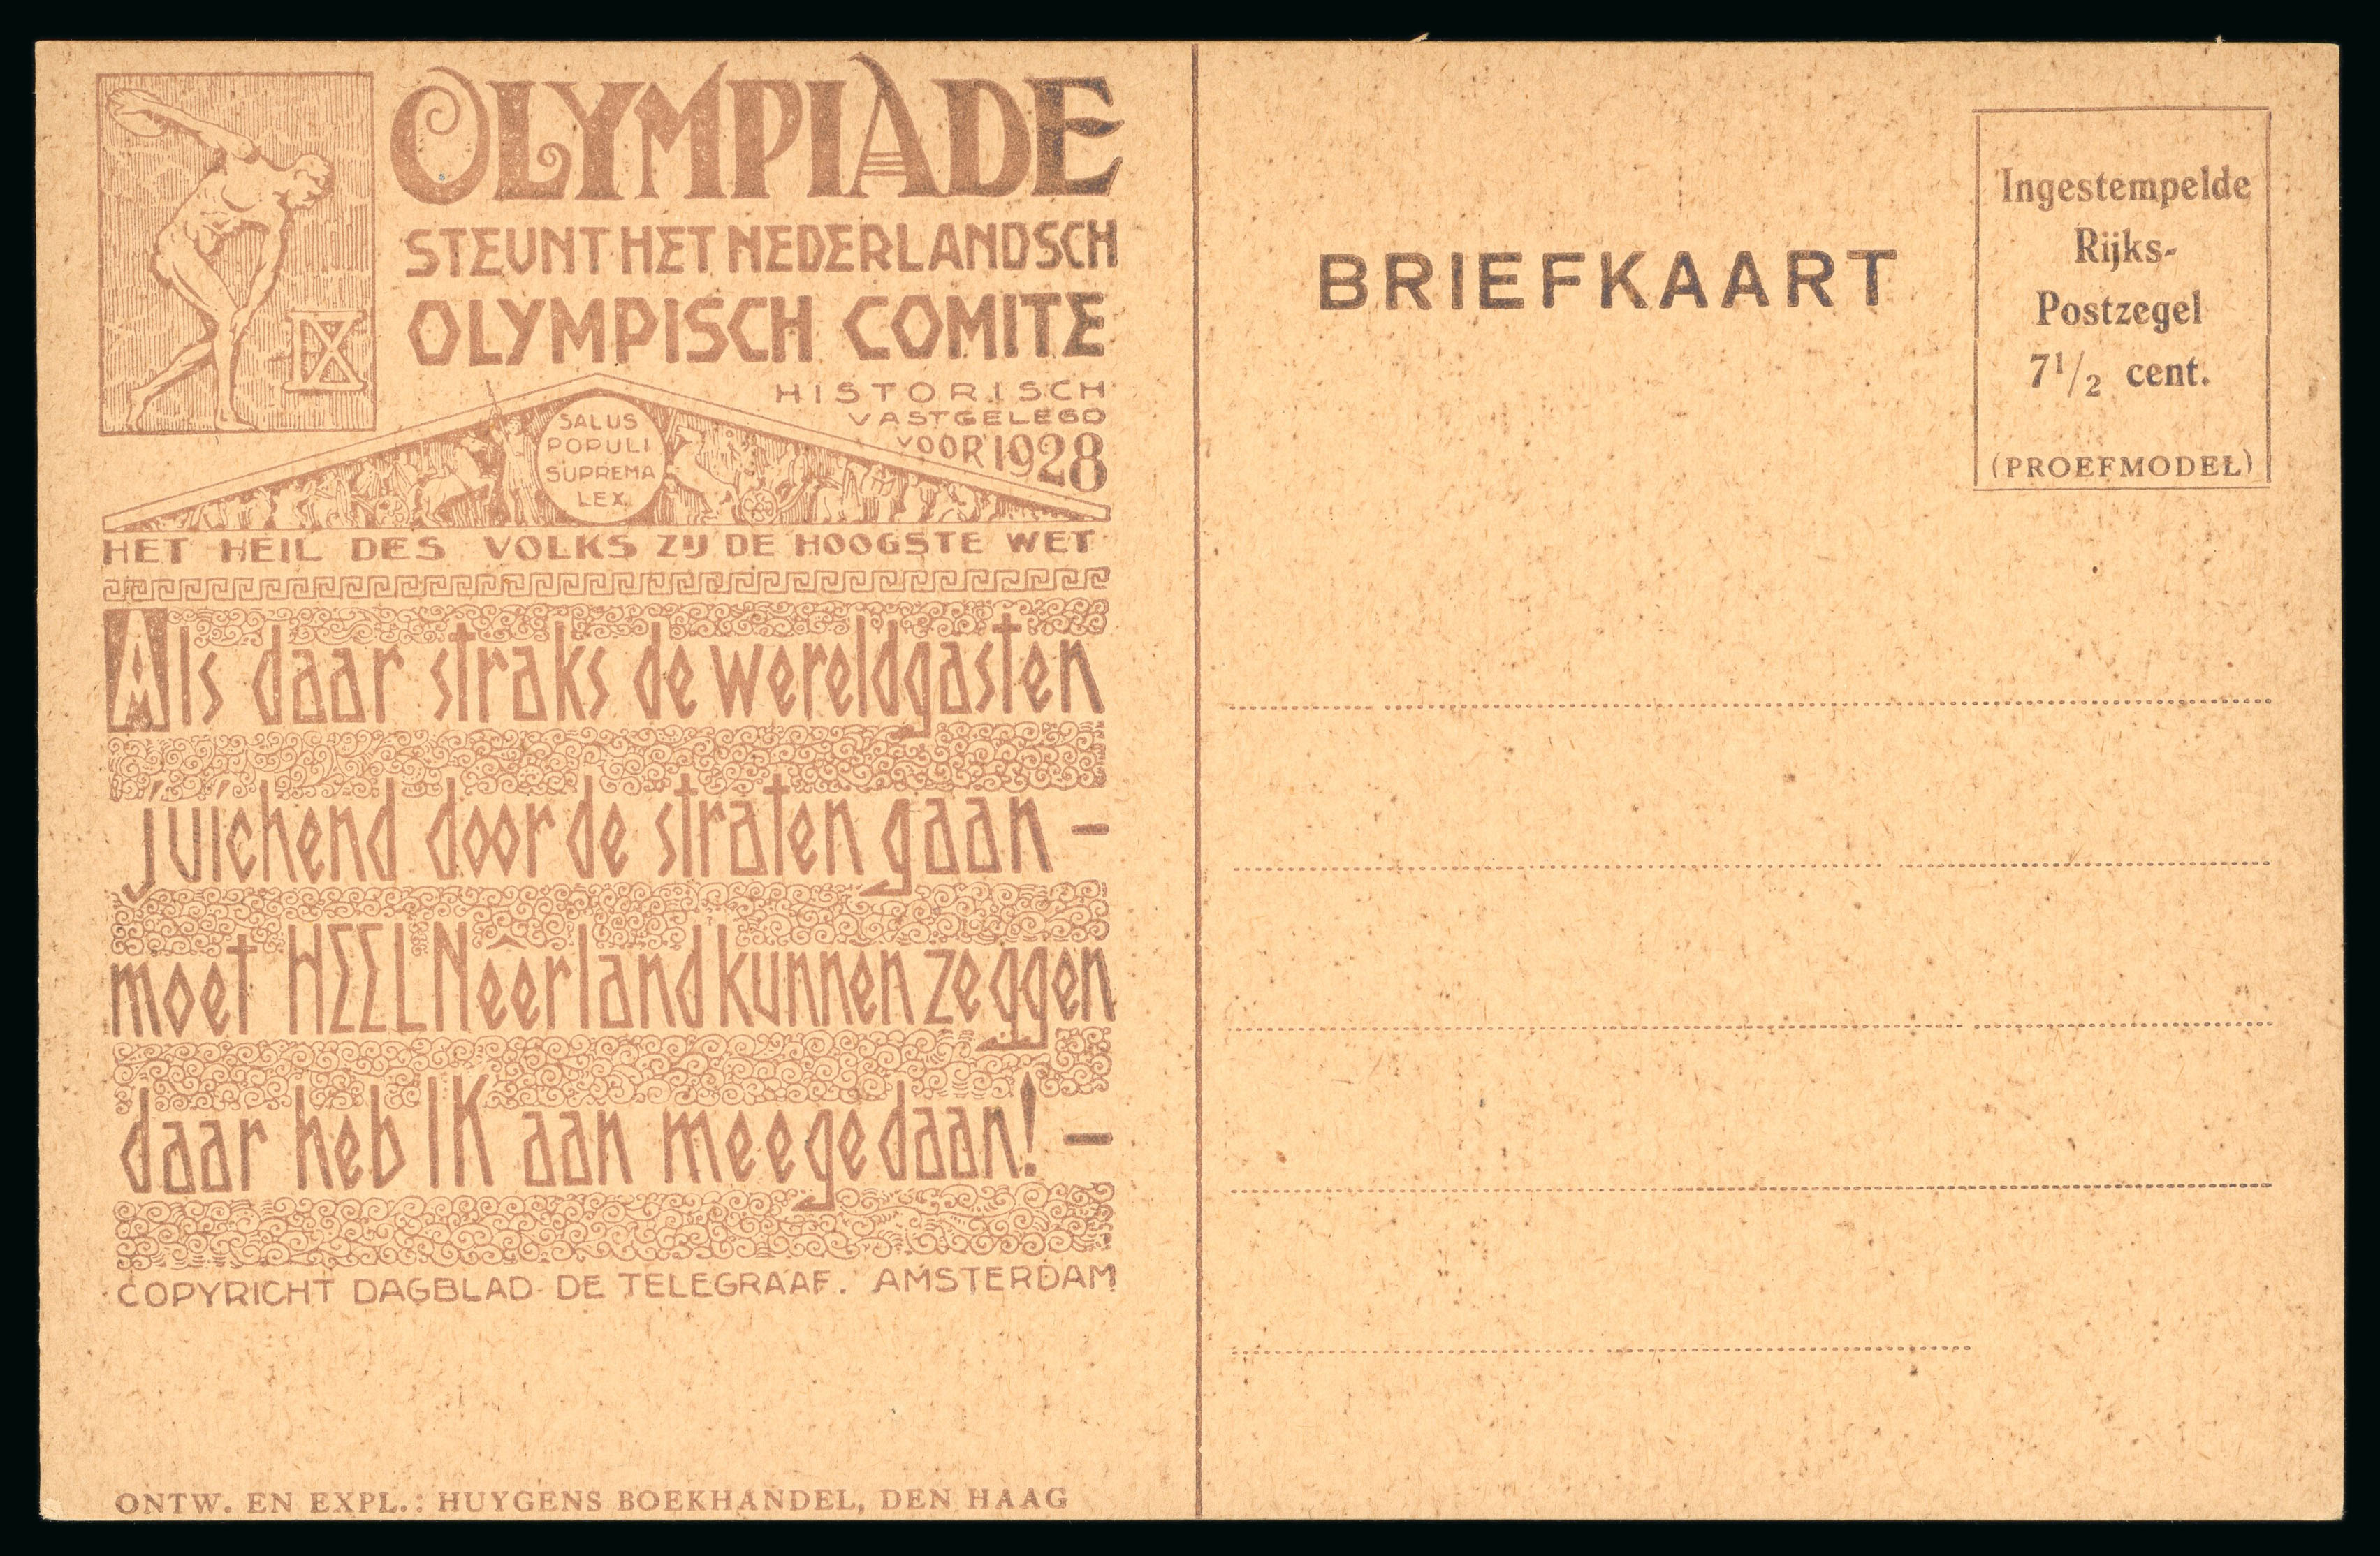 OLYMPIADE
STEUNT HET NEDERLANDSCH
OLYMPISCH COMITE
HISTORISCH
VASTGELEGD
VOOR 1928
IX
SALUS
POPULI
SUPREMA
LEX.
HET HEIL DES VOLKS ZIJ DE HOOGSTE WET
Als daar straks de wereldgasten
juichend door de straten gaan –
moet HEEL Neêrland kunnen zeggen
daar heb IK aan meegedaan! –
COPYRICHT DAGBLAD DE TELEGRAAF. AMSTERDAM
ONTW. EN EXPL.: HUYGENS BOEKHANDEL, DEN HAAG
BRIEFKAART
Ingestempelde
Rijks-
Postzegel
7 1/2 cent.
(PROEFMODEL)